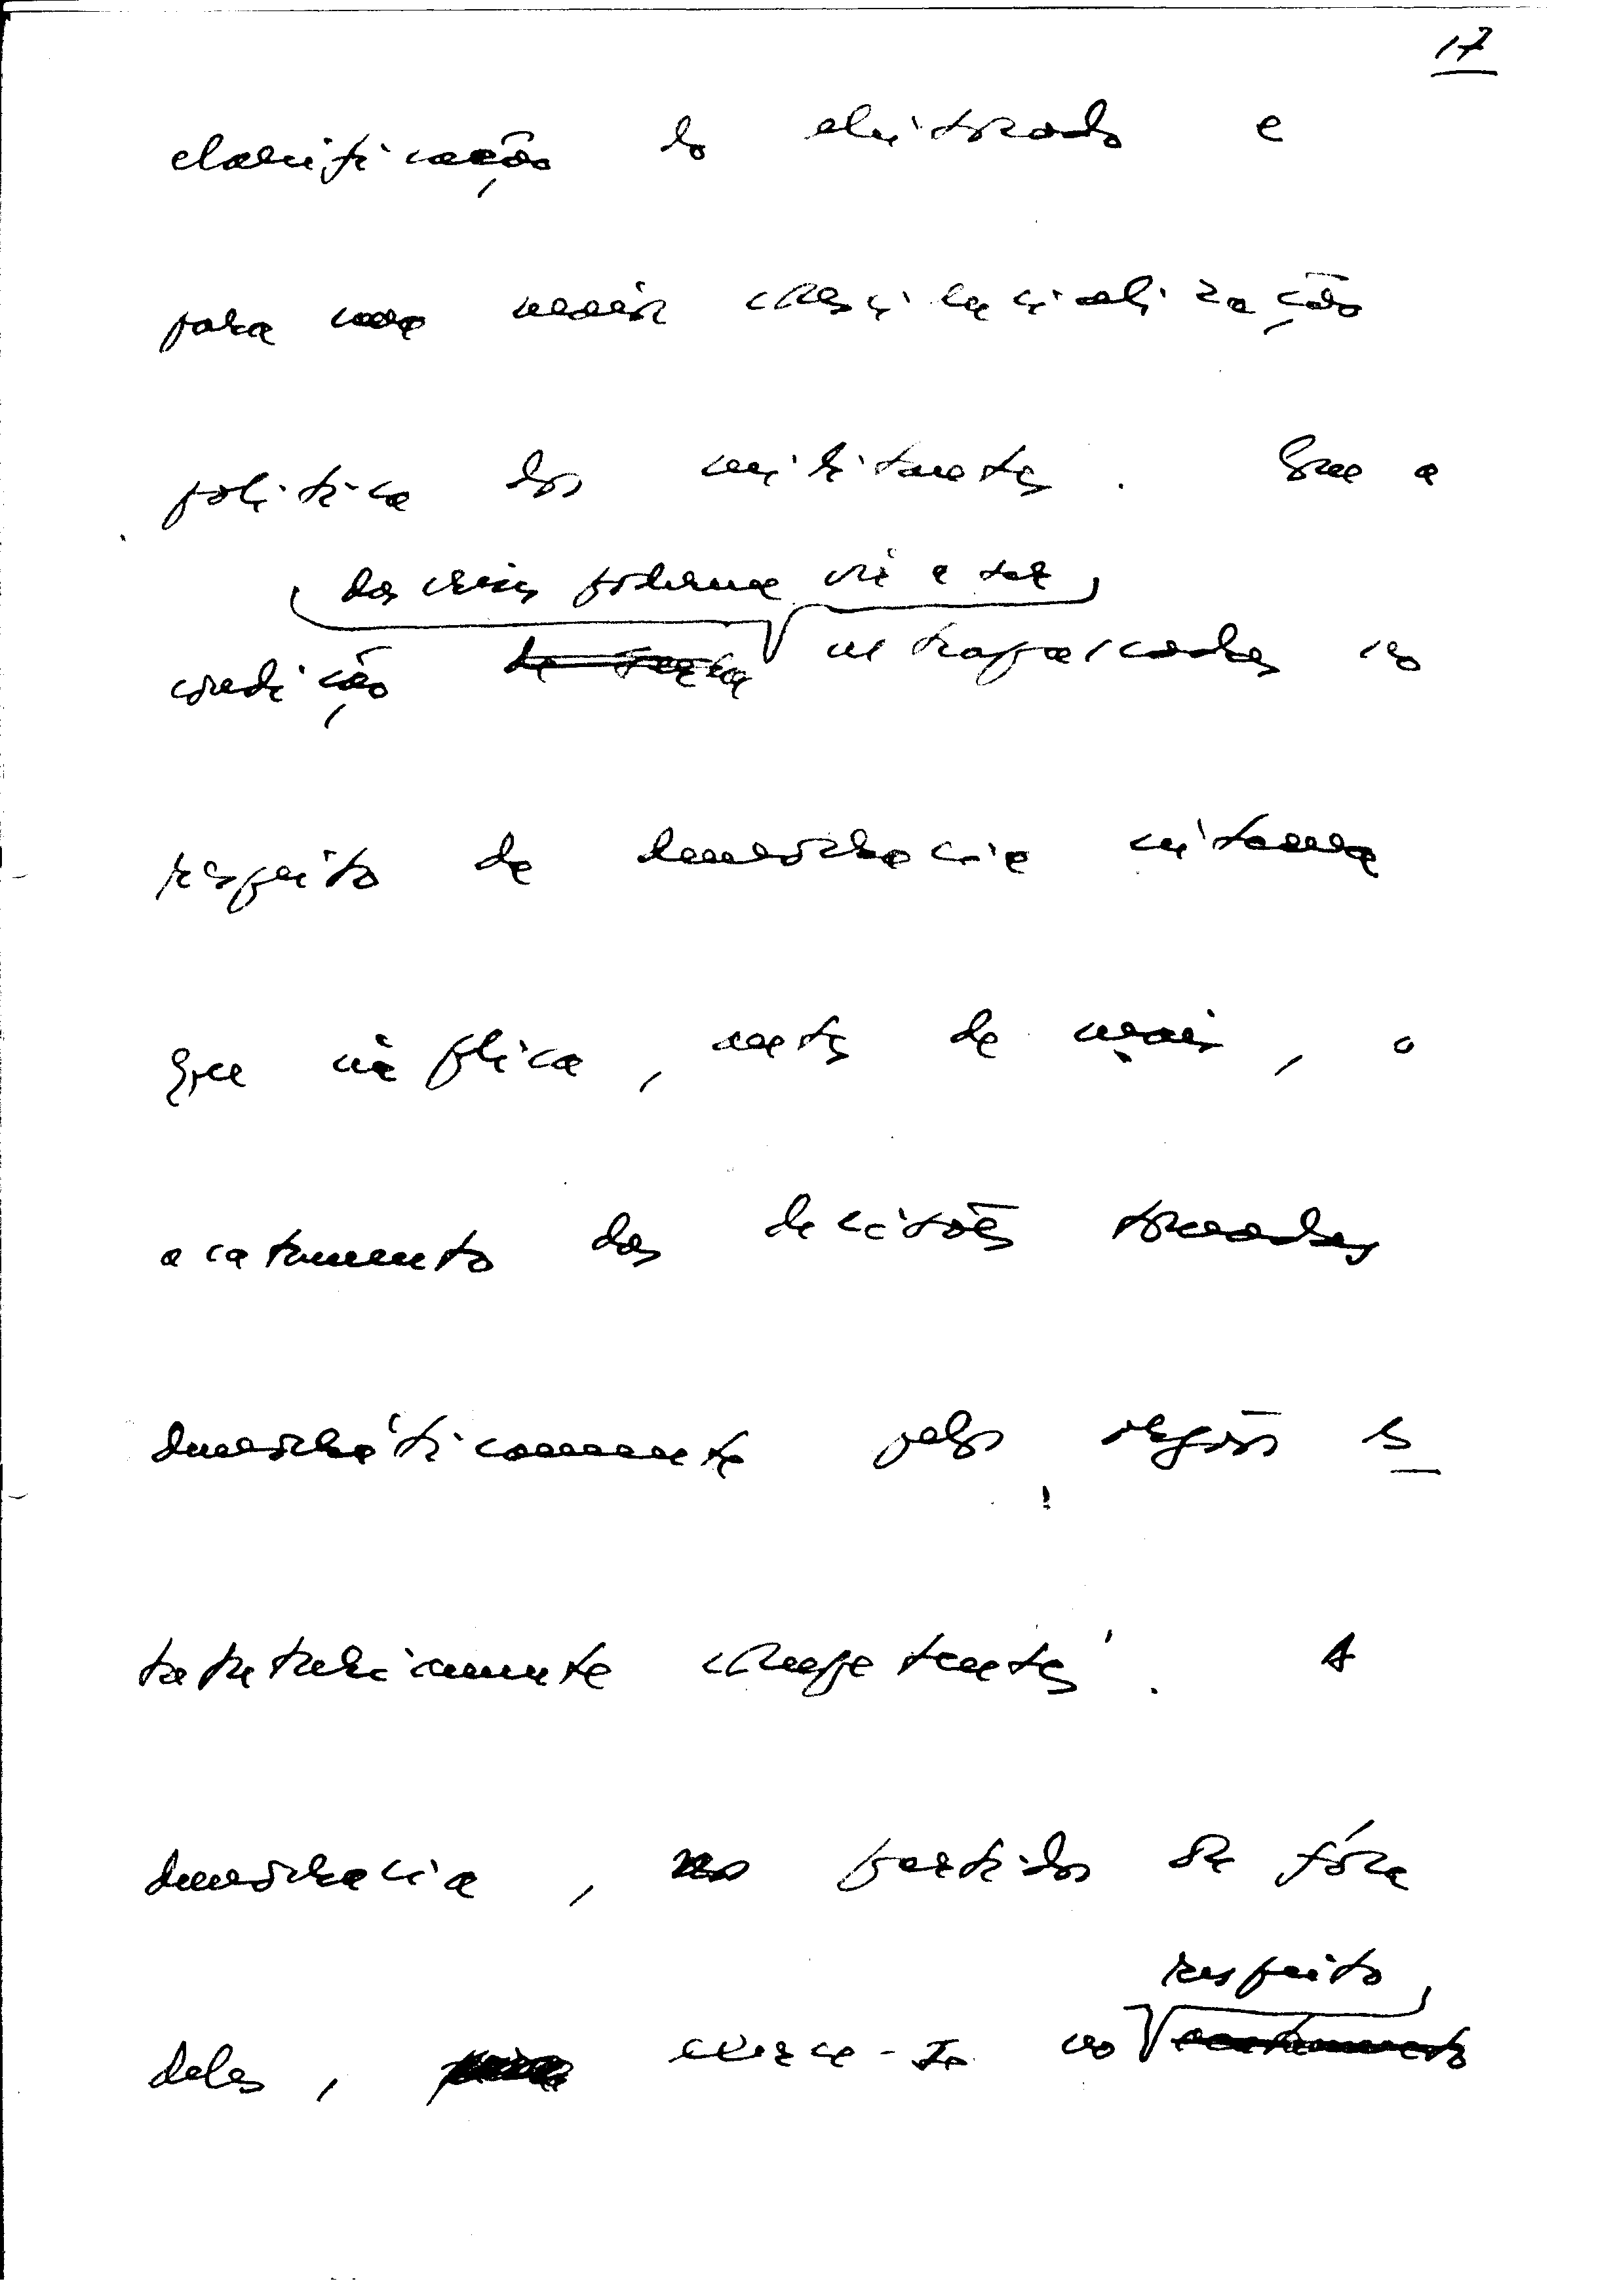 17
clarificação do eleitorado e
para uma maior consciencialização
política dos militantes. Que a
das crises poderem vir a ser
condição ultrapassadas no
respeito da democracia interna
que implica, antes de mais, o
acatamento das decisões tomadas
democráticamente pelos orgãos es
tatutáriamente competentes. A
democracia, nos partidos ou fóra
respeito
deles, exerce-se no acatamento